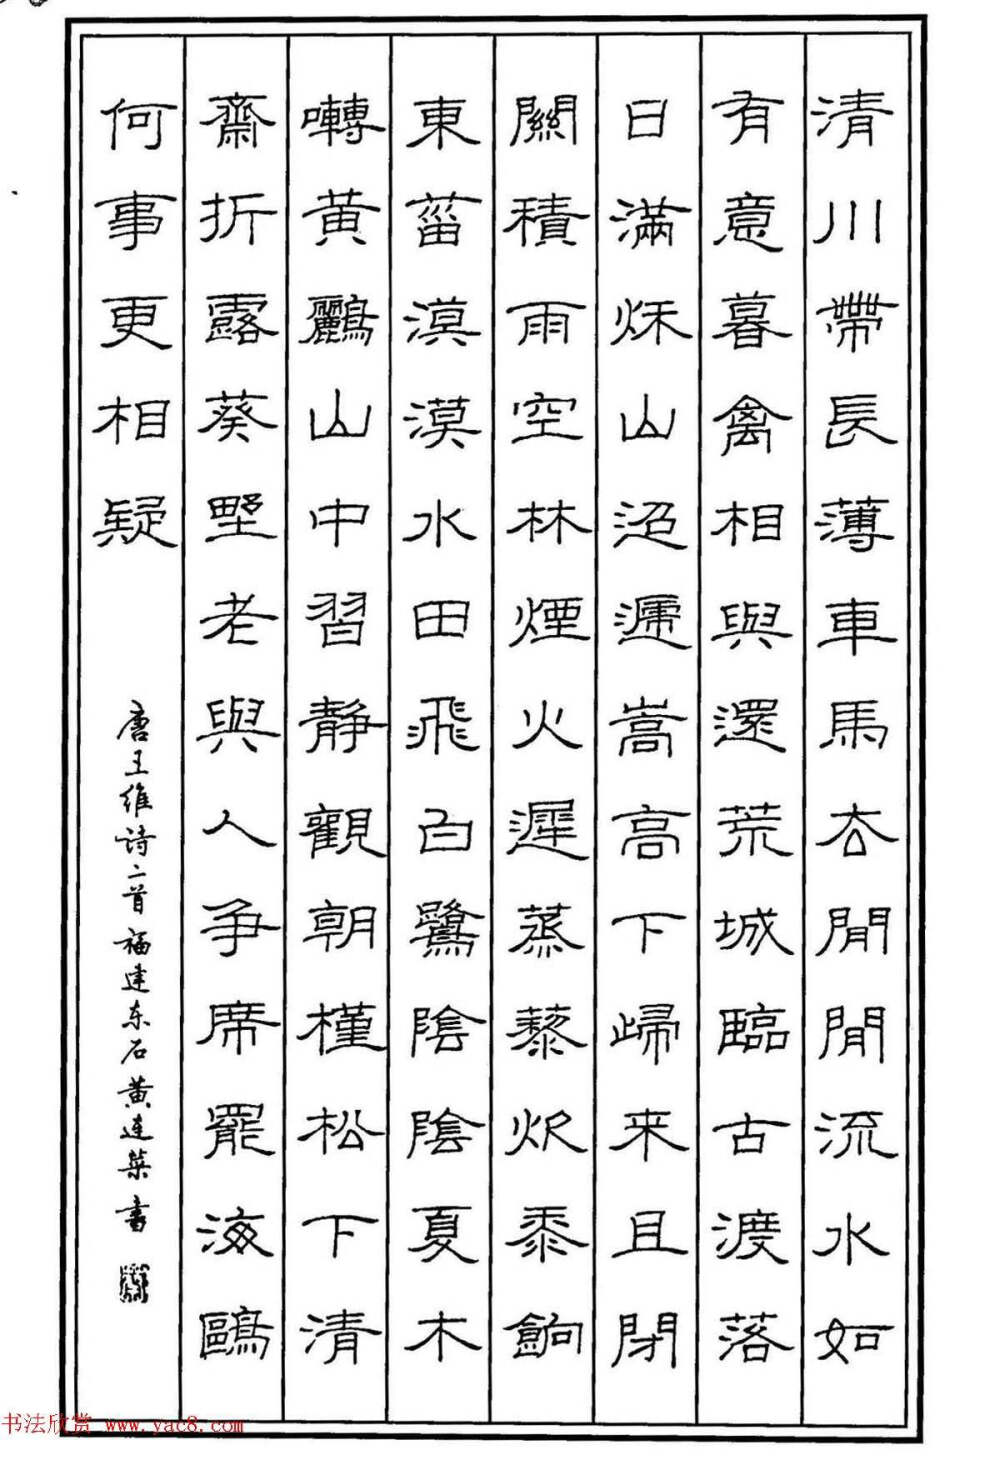 清川帶長薄車馬去閒閒流水如
有意暮禽相與還荒城臨古渡落
日滿秌山迢遞嵩高下歸来且閉
關積雨空林煙火遲蒸藜炊黍餉
東菑漠漠水田飛白鷺陰陰夏木
囀黄鸝山中習静觀朝槿松下清
齋折露葵墅老與人争席罷海鷗
何事更相疑
唐王维诗二首福建东石黄连荣书
书法欣赏 www.yac8.com